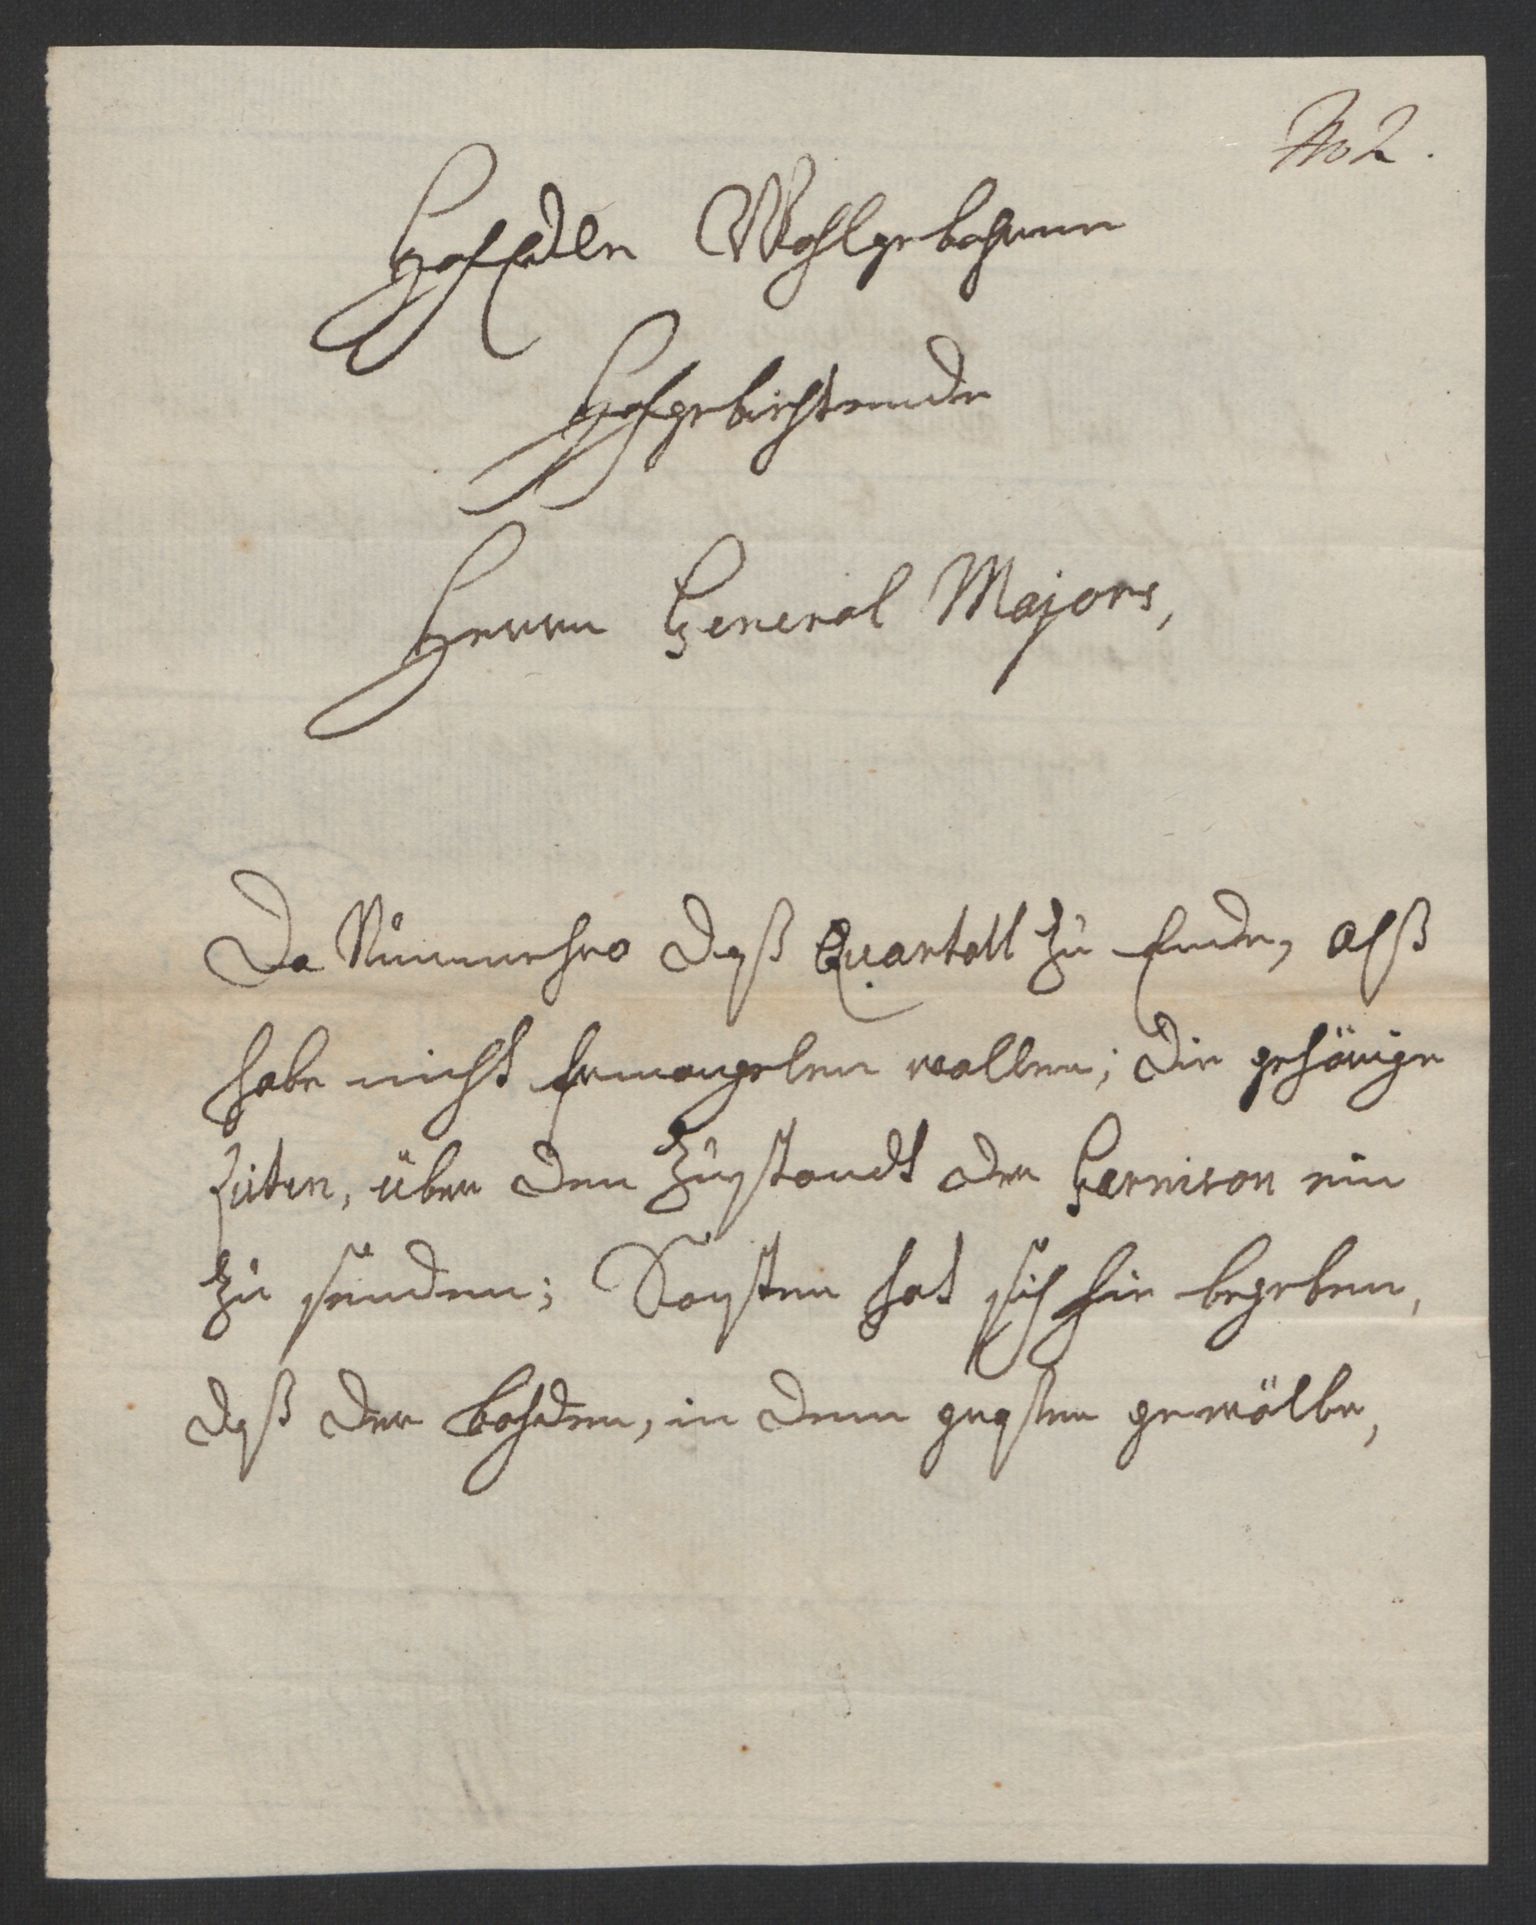 No 2.
HochEdler Wohlgebohrner
Hochgebiehtender
Herrn General Majors,
Da Nunmehro daß Quartall zu Ende, alß
habe nicht Ermangelen wollen; die gehörige
Listen, über den Zustandt der Garnison ein
zu senden; Sonsten hat sich hie begeben,
daß der bohden, in dem gewölbe,